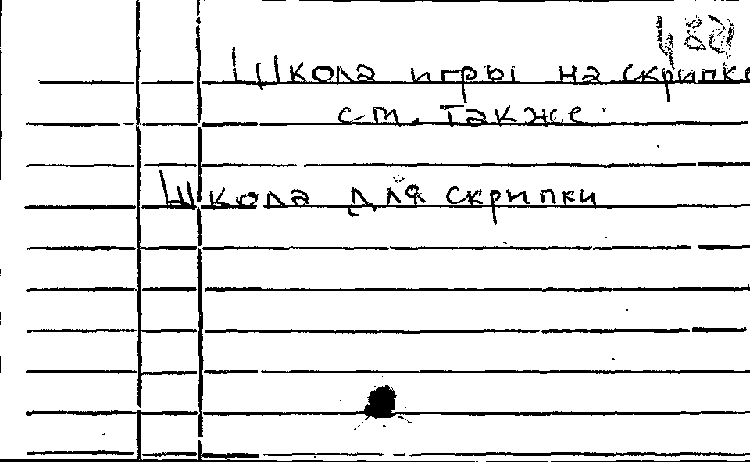 Школа игры на скрипке
см. также
Школа для скрипки